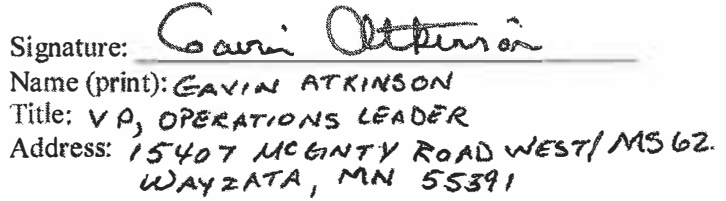 Signature: Gavin Atkinson
Name (print): GAVIN ATKINSON
Title: VP, OPERATIONS LEADER
Address: 15407 MCGINTY ROAD WEST/MS62.
WAYZATA, MN 55391